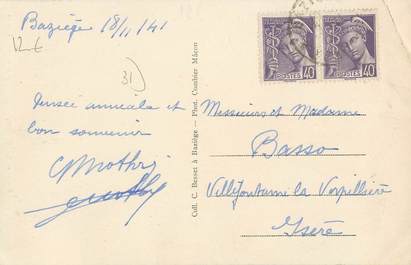 Baziège 18/11/41
12 €
31)
amicale et
bon souvenir
Messieurs et Madame
Basso
Villefontaine la Verpillière
Isère
Coll. C. Besset à Baziège — Phot. Combier Mâcon
POSTES 40
POSTES 40